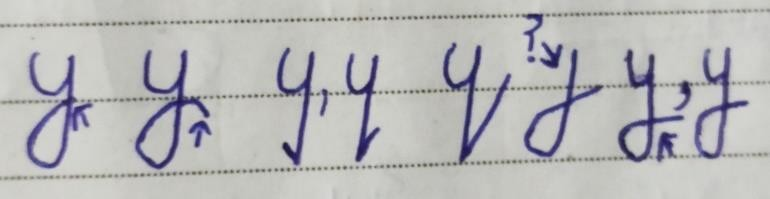 y y y, y y ? y y, y